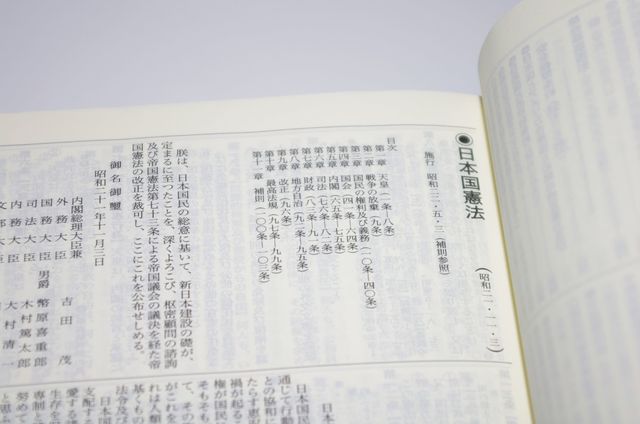 ◉日本国憲法
(昭和二一・一一・三)
施行 昭和二二・五・三(補則参照)
目次
第一章 天皇(一条―八条)
第二章 戦争の放棄(九条)
第三章 国民の権利及び義務(一〇条―四〇条)
第四章 国会(四一条―六四条)
第五章 内閣(六五条―七五条)
第六章 司法(七六条―八二条)
第七章 財政(八三条―九一条)
第八章 地方自治(九二条―九五条)
第九章 改正(九六条)
第十章 最高法規(九七条―九九条)
第十一章 補則(一〇〇条―一〇三条)
朕は、日本国民の総意に基いて、新日本建設の礎が、
定まるに至つたことを、深くよろこび、枢密顧問の諮詢
及び帝国憲法第七十三条による帝国議会の議決を経た帝
国憲法の改正を裁可し、ここにこれを公布せしめる。
御名御璽
昭和二十一年十一月三日
内閣総理大臣兼
外務大臣 吉田茂
国務大臣 男爵 幣原喜重郎
司法大臣 木村篤太郎
内務大臣 大村清一
文部大臣
日本
日本国民
通じて行動
との協和に
たらす恵沢
禍が起る
権が国民
そもそも
て、その
がこれを
れは人類
基くもの
法令及び
日本国
支配する
愛する諸
生存を
専制と
努めて
と思ふ